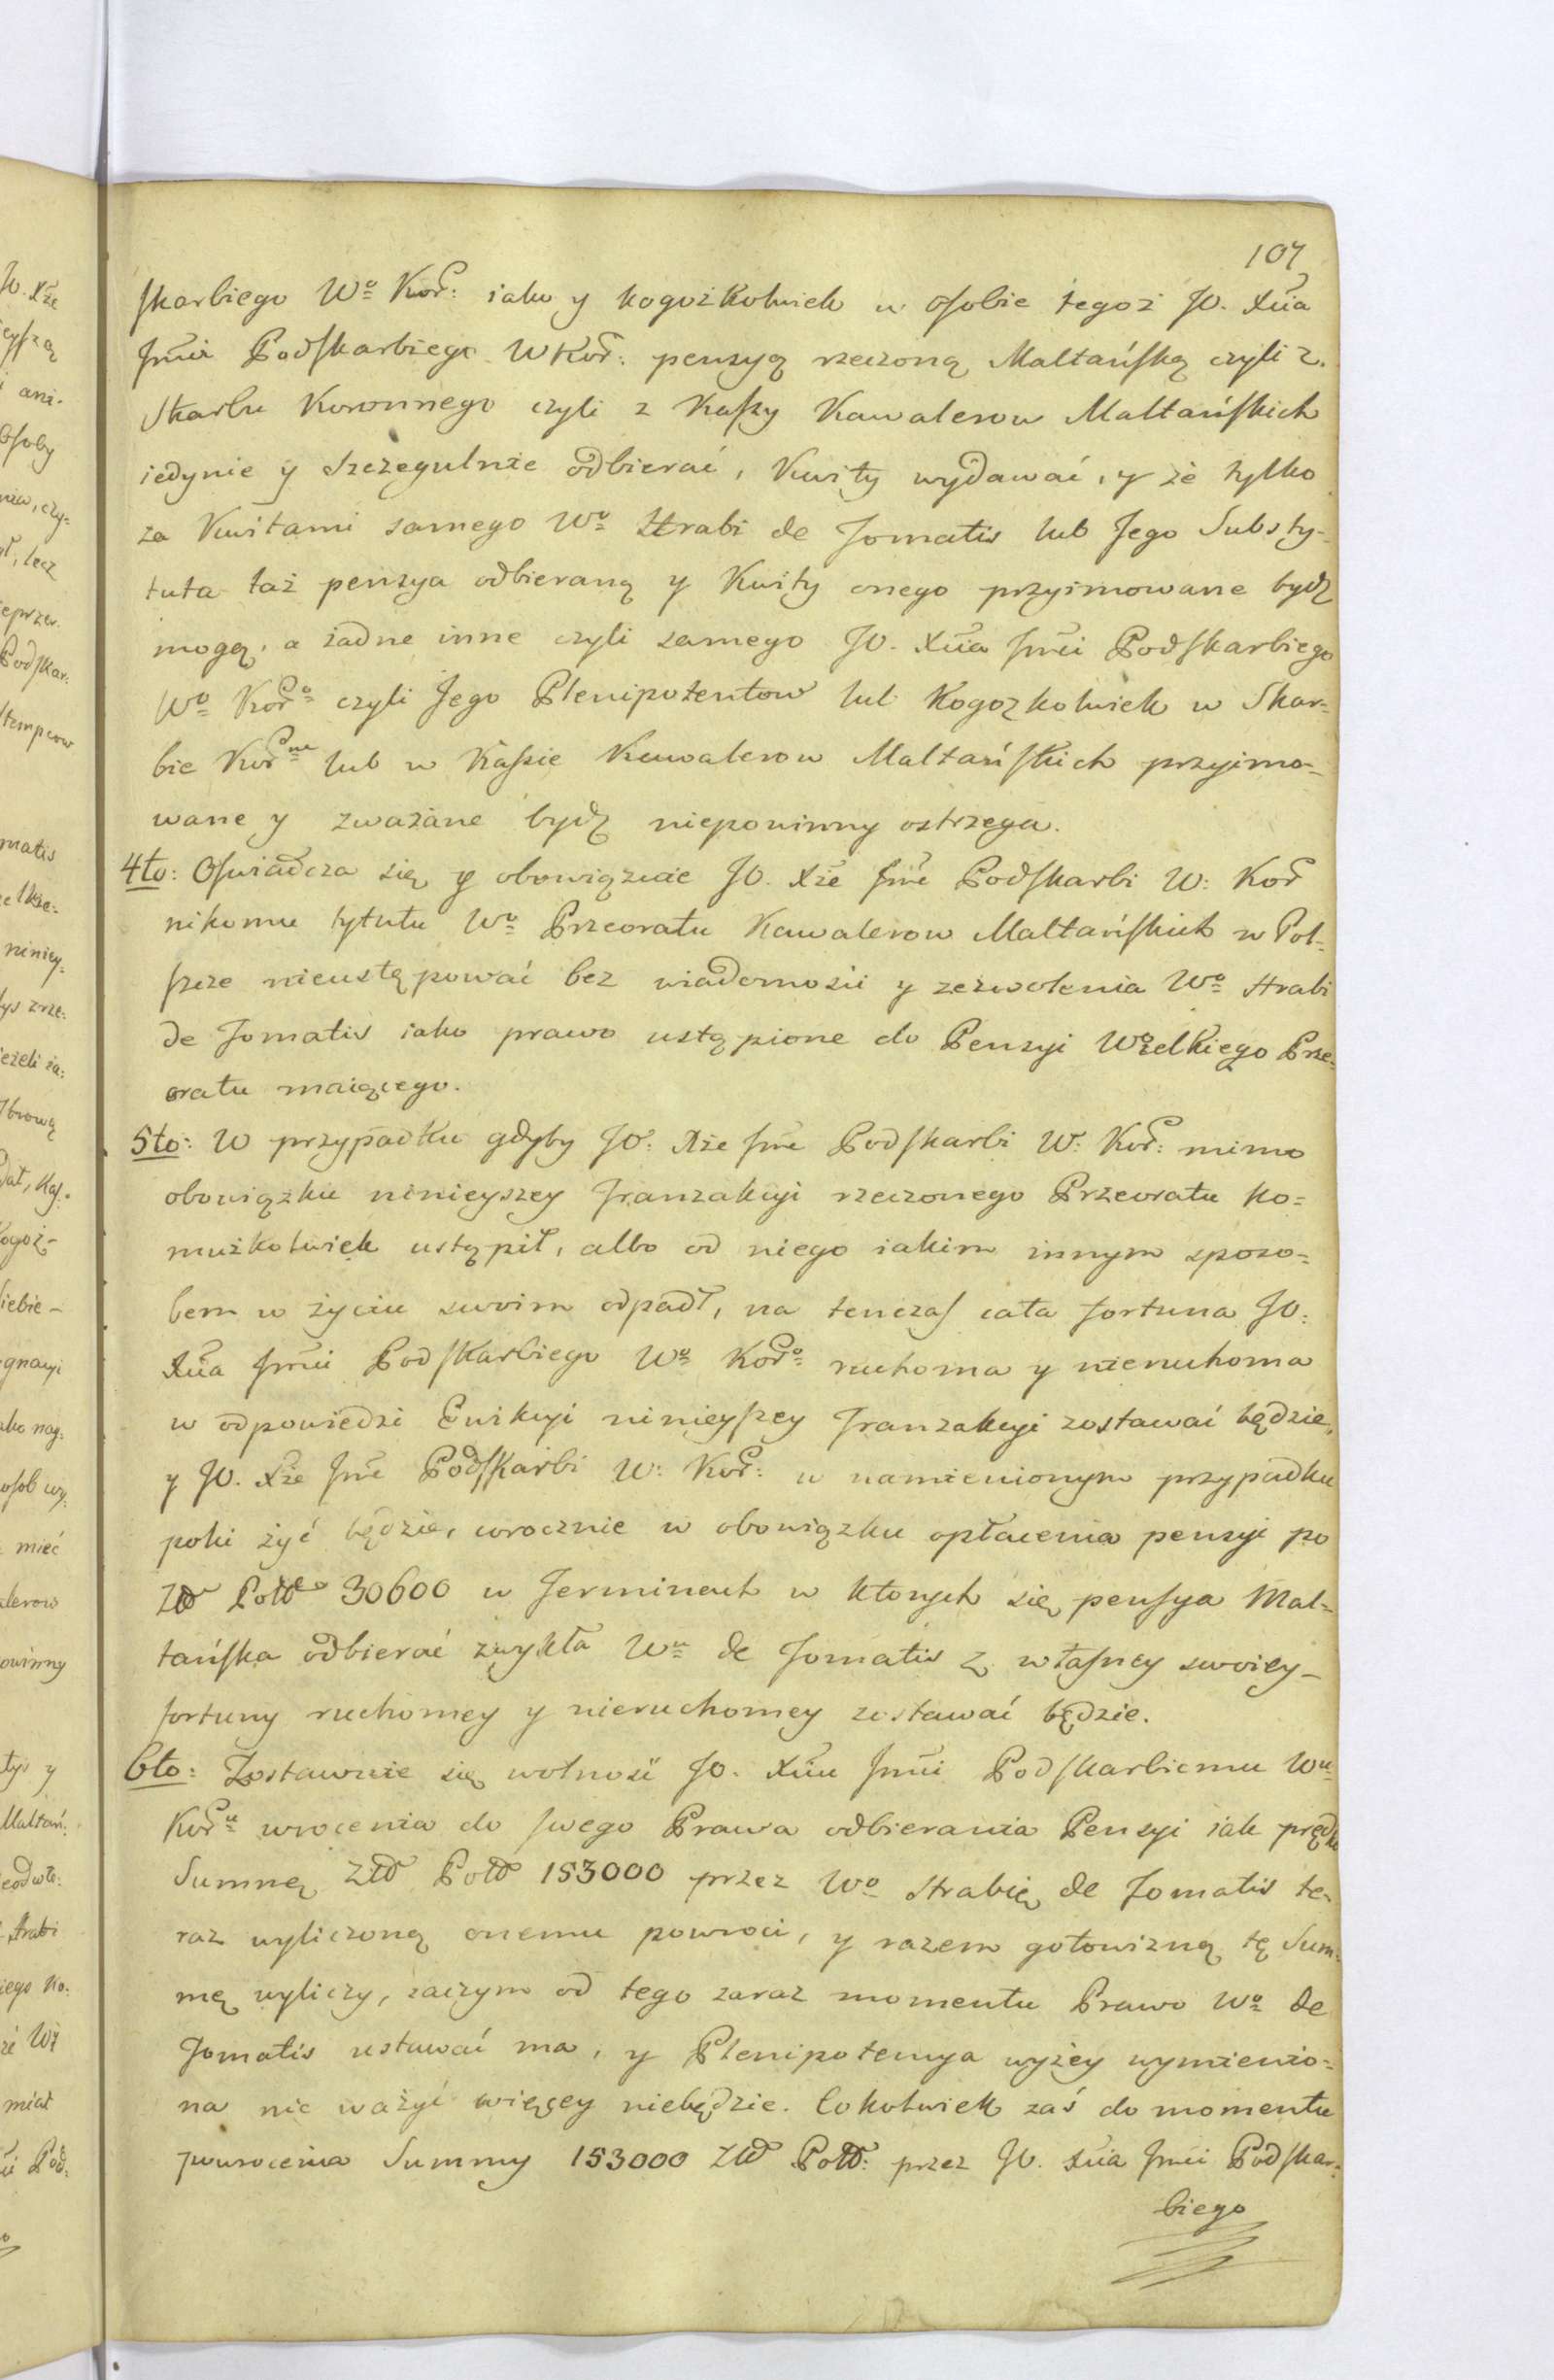 107
skarbiego Wo Kor: iako y kogożkolwiek w osobie tegoż JO. Xcia
Jmci Podskarbiego WKor: pensyą rzeczoną Maltańską czyli z
Skarbu Koronnego czyli z Kassy Kawalerow Maltańskich
iedynie y szczegulnie odbierać, Kwity wydawać, y że tylko
za Kwitami samego Wo Hrabi de Jomatis lub Jego Substy-
tuta taż pensya odbieraną y Kwity onego przyimowane bydź
mogą, a żadne inne czyli samego JO. Xcia Jmci Podskarbiego
Wo Koro czyli Jego Plenipotentow lub Kogozkolwiek w Skar=
bie Kornm lub w Kassie Kawalerow Maltańskich przyimo=
wane y zważane bydź niepowinny ostrzega.
4to: Oswiadcza się y obowiązuie JO. Xże Jmć Podskarbi W: Kor
nikomu tytułu Wo Przeoratu Kawalerow Maltańskich w Pol=
szcze nieustępować bez wiadomości y zezwolenia Wo Hrabi
de Jomatis iako prawo ustąpione do Pensyi Wielkiego Prze=
oratu maiącego.
5to: W przypadku gdyby JO: Xże Jmć Podskarbi W: Kor: mimo
obowiązku ninieyszey Tranzakcyi rzeczonego Przeoratu ko=
mużkolwiek ustąpił, albo od niego iakim innym sposo=
bem w życiu swoim odpadł, na tenczas cała fortuna JO:
Xcia Jmci Podskarbiego Wo Koro ruchoma y nieruchoma
w odpowiedzi Ewikcyi ninieyszey Tranzakcyi zostawać będzie,
y JO. Xże Jmć Podskarbi W: Kor: w namienionym przypadku
poki żyć będzie, corocznie w obowiązku opłacenia pensyi po
Złł Poll 30600 w Terminach w ktorych się pensya Mal=
tańska odbierać zwykła Wu de Jomatis z własney swoiey
fortuny ruchomey y nieruchomey zostawać będzie.
6to: Zostawuie się wolność JO. Xciu Jmci Podskarbiemu Wu
Koru wrocenia do swego Prawa odbierania Pensyi iak prędko
Summę Złł Poll 153000 przez Wo Hrabię de Jomatis te=
raz wyliczoną onemu powroci, y razem gotowizną tę Sum=
mę wyliczy, zaczym od tego zaraz momentu Prawo Wo de
Jomatis ustawać ma, y Plenipotencya wyżey wymienio=
na nic ważyć więcey niebędzie. Cokolwiek zaś do momentu
zwrocenia Summy 153000 Złł Poll: przez JO. Xcia Jmci Podskar=
biego